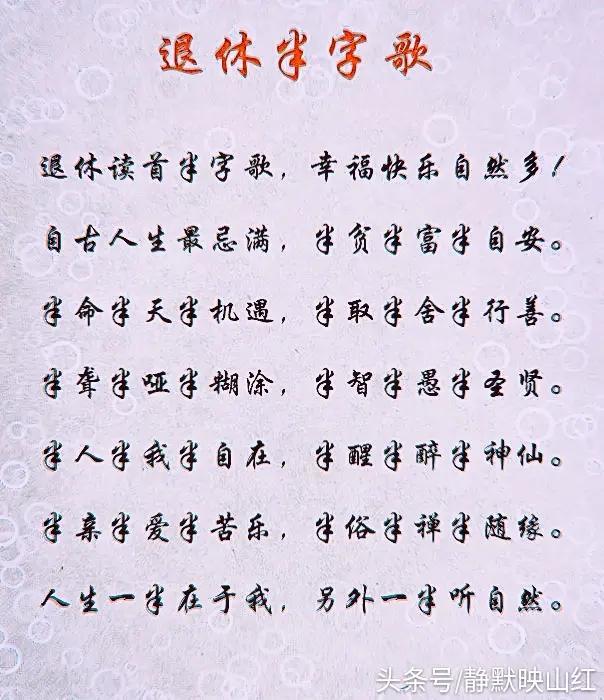 退休半字歌
退休读首半字歌，幸福快乐自然多！
自古人生最忌满，半贫半富半自安。
半命半天半机遇，半取半舍半行善。
半聋半哑半糊涂，半智半愚半圣贤。
半人半我半自在，半醒半醉半神仙。
半亲半爱半苦乐，半俗半禅半随缘。
人生一半在于我，另外一半听自然。
头条号/静默映山红